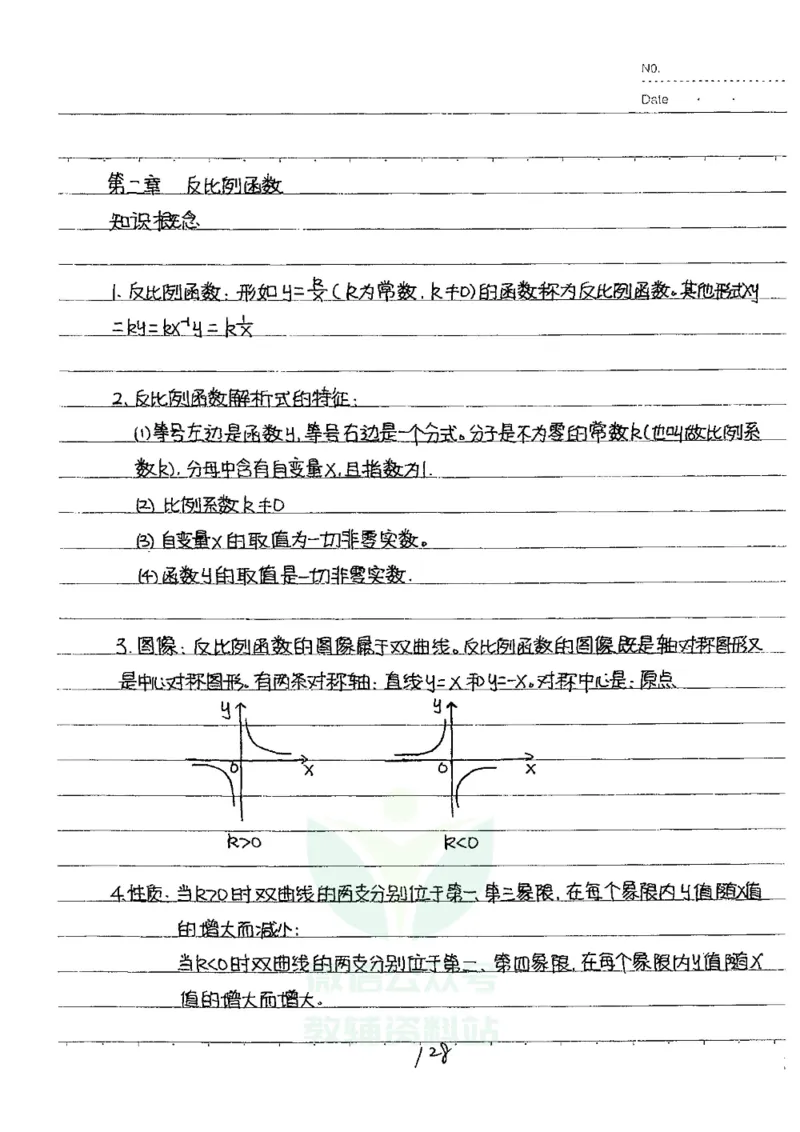 NO.
Date
第二章 反比例函数
知识概念
1. 反比例函数: 形如y=k/x(k为常数, k≠0)的函数称为反比例函数。其他形式xy
=ky=kx⁻¹y=k1/x
2. 反比例函数解析式的特征:
(1)等号左边是函数y, 等号右边是一个分式。分子是不为零的常数k(也叫做比例系
数k), 分母中含有自变量x, 且指数为1.
(2) 比例系数k≠0
(3) 自变量x的取值为一切非零实数。
(4) 函数y的取值是一切非零实数.
3. 图像: 反比例函数的图像属于双曲线。反比例函数的图像既是轴对称图形又
是中心对称图形。有两条对称轴: 直线y=x和y=-x。对称中心是: 原点
y y
0 x 0 x
k>0 k<0
4. 性质: 当k>0时双曲线的两支分别位于第一、第三象限, 在每个象限内y值随x值
的增大而减小;
当k<0时双曲线的两支分别位于第二、第四象限, 在每个象限内y值随x
值的增大而增大。
微信公众号
教辅资料站
128